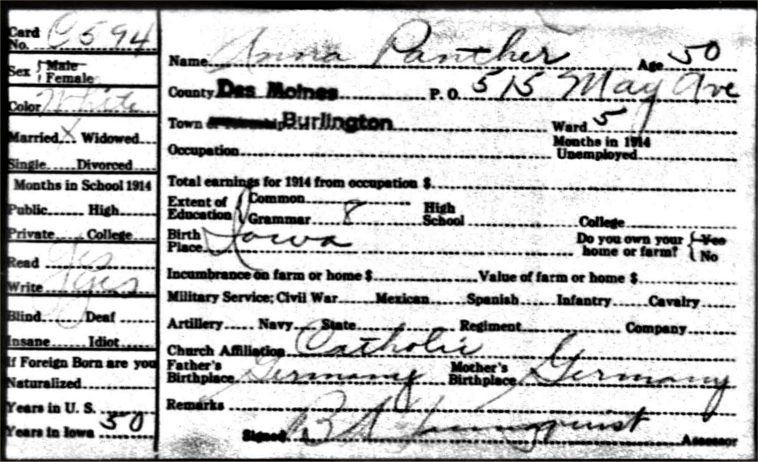 Card No. C594
Sex Male Female
Color White
Married X Widowed
Single Divorced
Months in School 1914
Public High
Private College
Read Yes
Write Yes
Blind Deaf
Insane Idiot
If Foreign Born are you
Naturalized
Years in U. S.
Years in Iowa 50
Name Anna Panther Age 50
County Des Moines P. O. 515 May Ave
Town or Township Burlington Ward 5
Occupation Months in 1914 Unemployed
Total earnings for 1914 from occupation $
Extent of Education Common
Grammar 8 High School College
Birth Place Iowa Do you own your home or farm? Yes No
Incumbrance on farm or home $ Value of farm or home $
Military Service; Civil War Mexican Spanish Infantry Cavalry
Artillery Navy State Regiment Company
Church Affiliation Catholic
Father's Birthplace Germany Mother's Birthplace Germany
Remarks
Signed Assessor